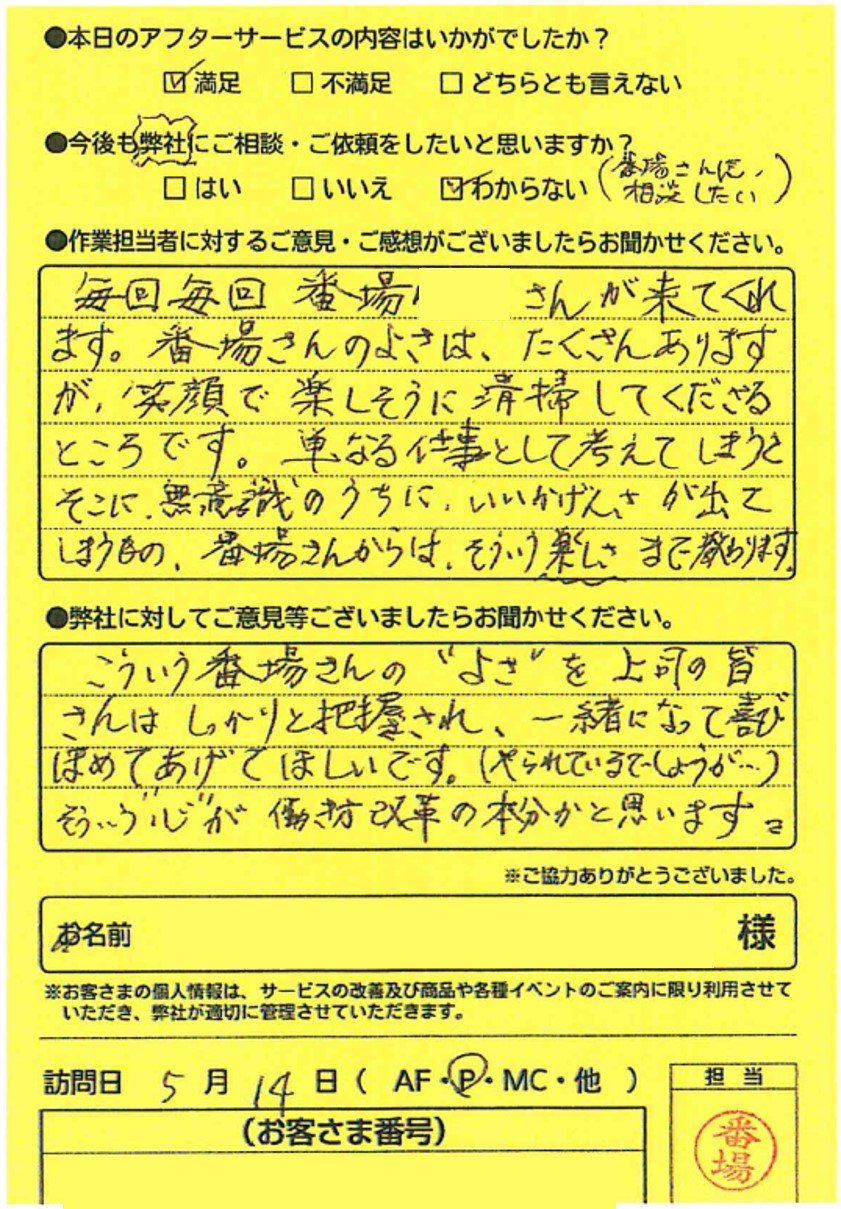 ●本日のアフターサービスの内容はいかがでしたか？
☑満足 □不満足 □どちらとも言えない
●今後も弊社にご相談・ご依頼をしたいと思いますか？
□はい □いいえ ☑わからない（番場さんに、
相談したい）
●作業担当者に対するご意見・ご感想がございましたらお聞かせください。
毎回毎回 番場 さんが来てくれ
ます。番場さんのよさは、たくさんあります
が、笑顔で楽しそうに清掃してくださる
ところです。単なる仕事として考えてしまうと
そこに、無意識のうちに、いいかげんさが出て
しまうもの、番場さんからは、そういう楽しさまで教わります。
●弊社に対してご意見等ございましたらお聞かせください。
こういう番場さんの“よさ”を上司の皆
さんはしっかりと把握され、一緒になって喜び
ほめてあげてほしいです。（やられているでしょうが…）
そういう“心”が働き方改革の本分かと思います。
※ご協力ありがとうございました。
お名前 様
※お客さまの個人情報は、サービスの改善及び商品や各種イベントのご案内に限り利用させて
いただき、弊社が適切に管理させていただきます。
訪問日 5月14日（ AF・P・MC・他 ）
担当
（お客さま番号）
番場